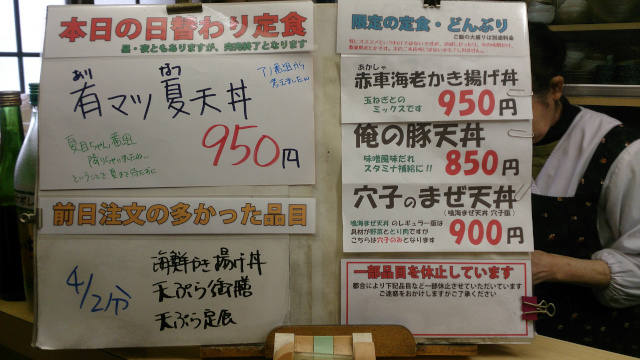 本日の日替わり定食
昼・夜ともありますが、完売終了となります
あり なつ
有マツ夏天丼
950円
前日注文の多かった品目
4/2分
海鮮かき揚げ丼
天ぷら御膳
天ぷら定食
限定の定食・どんぶり
ご飯の大盛りは別途料金
あかしゃ
赤車海老かき揚げ丼
玉ねぎとの
ミックスです
950円
俺の豚天丼
味噌風味だれ
スタミナ補給に!!
850円
穴子のまぜ天丼
(鳴海まぜ天丼 穴子版)
鳴海まぜ天丼 のレギュラー版は
具材が野菜ととり肉ですが
こちらは穴子のみとなります
900円
一部品目を休止しています
都合により下記品目など一部休止させていただいています
ご迷惑をおかけしますがご了承ください